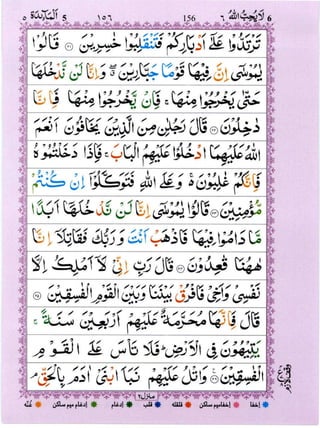 المآئدة ٥ ١٥٦ 156 لا يحب الله ٦
تَرْتَدُّوْا عَلٰٓى اَدْبَارِكُمْ فَتَنْقَلِبُوْا خٰسِرِيْنَ ۝ قَالُوْا
يٰمُوْسٰٓى اِنَّ فِيْهَا قَوْمًا جَبَّارِيْنَ ۖ وَاِنَّا لَنْ نَّدْخُلَهَا
حَتّٰى يَخْرُجُوْا مِنْهَا ۚ فَاِنْ يَّخْرُجُوْا مِنْهَا فَاِنَّا
دٰخِلُوْنَ ۝ قَالَ رَجُلٰنِ مِنَ الَّذِيْنَ يَخَافُوْنَ اَنْعَمَ
اللّٰهُ عَلَيْهِمَا ادْخُلُوْا عَلَيْهِمُ الْبَابَ ۚ فَاِذَا دَخَلْتُمُوْهُ
فَاِنَّكُمْ غٰلِبُوْنَ ۚ وَعَلَى اللّٰهِ فَتَوَكَّلُوْٓا اِنْ كُنْتُمْ
مُّؤْمِنِيْنَ ۝ قَالُوْا يٰمُوْسٰٓى اِنَّا لَنْ نَّدْخُلَهَآ اَبَدًا
مَّا دَامُوْا فِيْهَا فَاذْهَبْ اَنْتَ وَرَبُّكَ فَقَاتِلَآ اِنَّا
هٰهُنَا قٰعِدُوْنَ ۝ قَالَ رَبِّ اِنِّيْ لَآ اَمْلِكُ اِلَّا
نَفْسِيْ وَاَخِيْ فَافْرُقْ بَيْنَنَا وَبَيْنَ الْقَوْمِ الْفٰسِقِيْنَ ۝
قَالَ فَاِنَّهَا مُحَرَّمَةٌ عَلَيْهِمْ اَرْبَعِيْنَ سَنَةً ۚ
يَتِيْهُوْنَ فِي الْاَرْضِ ۚ فَلَا تَاْسَ عَلَى الْقَوْمِ
الْفٰسِقِيْنَ ۝ وَاتْلُ عَلَيْهِمْ نَبَاَ ابْنَيْ اٰدَمَ بِالْحَقِّ
منزل ٢
اخفا اخفا میم ساکن قلقله قلب ادغام ادغام میم ساکن غنه